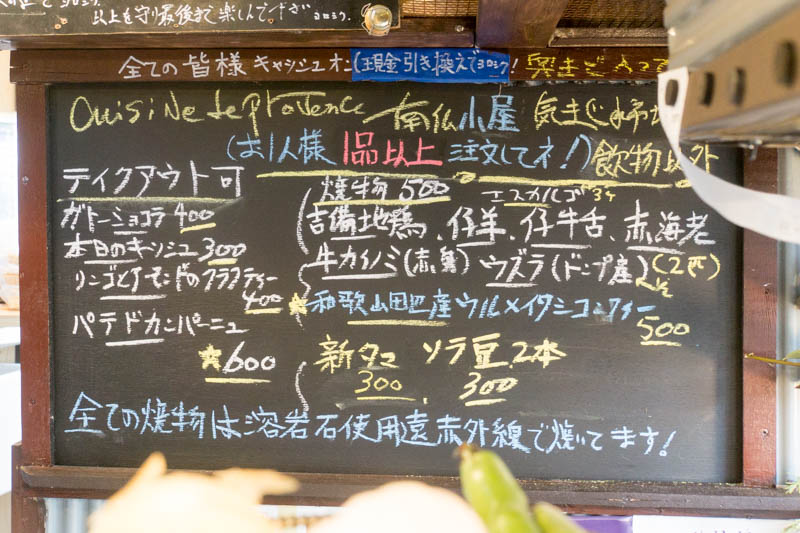 以上を守り最後まで楽しんで下さい ヨロシク!
全ての皆様 キャッシュオン(現金引き換えでヨロシク!
Cuisine de provence 南仏小屋 気まぐれ
(お1人様 1品以上 注文してネ!) 飲物以外
テイクアウト可
ガトーショコラ 400
本日のキッシュ 300
リンゴとアーモンドのクラフティー
400
パテドカンパーニュ
★600
焼物 500 エスカルゴ
吉備地鴨、仔羊、仔牛舌、赤海老
牛カイノミ(赤身) ウズラ(ドンブ産) (2匹)
★和歌山田辺産ウルメイワシコンフィー
500
新タマ ソラ豆 2本
300 300
全ての焼物は溶岩石使用遠赤外線で焼いてます!